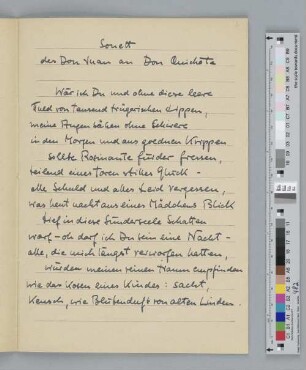 Sonett
des Don Juan an Don Quichote
Wär ich Du und ohne diese leere
Flucht von tausend trügerischen Lippen,
meine Augen sähen ohne Schwere
in den Morgen und aus goldnen Krippen
sollte Rosinante für der fressen,
weil und eines Toren stilles Glück -
alle Schuld und alles Leid vergessen,
was heut nacht aus eines Mädchens Blick
tief in diese Sünderseele Schatten
warf - oh darf ich Du sein eine Nacht -
alle, die mich längst verworfen hatten,
würden meinen reinen Namen empfinden
wie das Kosen eines Kindes: sacht,
keusch, wie Blütenduft von alten Linden.